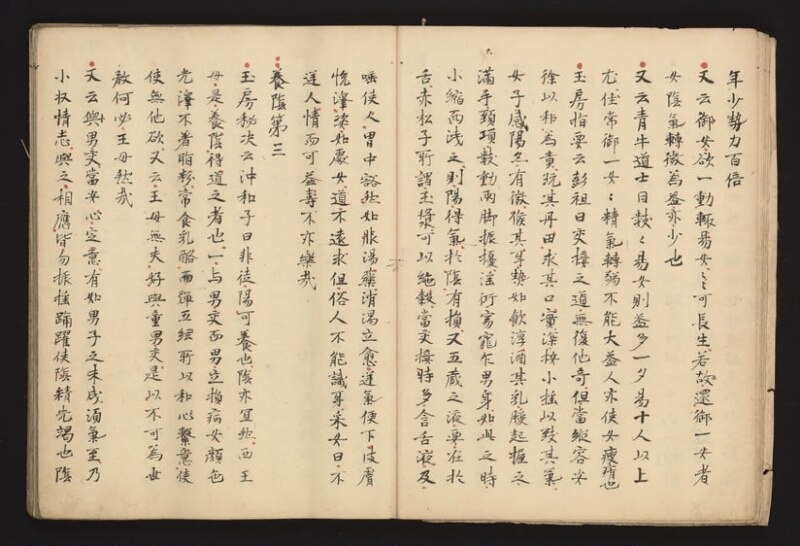 年少勢力百倍
又云御女欲一動輙易女〻〻可長生若故還御一女者
女陰氣轉微為益亦少也
又云青牛道士曰數〻易女則益多一夕易十人以上
尤佳常御一女〻精氣轉弱不能大益人亦使女瘦瘠也
玉房指要云彭祖曰交接之道無復他奇但當縱容安
徐以和為貴玩其丹田求其口實深按小搖以致其氣
女子感陽亦有徵候其耳熱如飲淳酒其乳腹起握之
滿手頸項數動兩脚振擾淫衍窈窕乍男身如此之時
小縮而淺之則陽得氣於陰有損又五蔵之液要在於
舌赤松子所謂玉漿可以絶穀當交接時多含舌液及
唾使人胃中豁然如服湯藥消渴立愈逆氣便下皮膚
悅澤姿如處女道不遠求但俗人不能識耳采女曰不
逆人情而可益壽不亦樂哉
養陰第三
玉房秘决云沖和子曰非徒陽可養也陰亦宜然西王
母是養陰得道之者也一与男交而男立損病女顔色
光澤不著脂粉常食乳酪而彈五絃所以和心繫意使
使無他欲又云王母無夫好與童男交是以不可為世
教何必王母然哉
又云與男交當安心定意有如男子之未成湏氣至乃
小収情志與之相應皆勿振搖踊躍使陰精先竭也陰